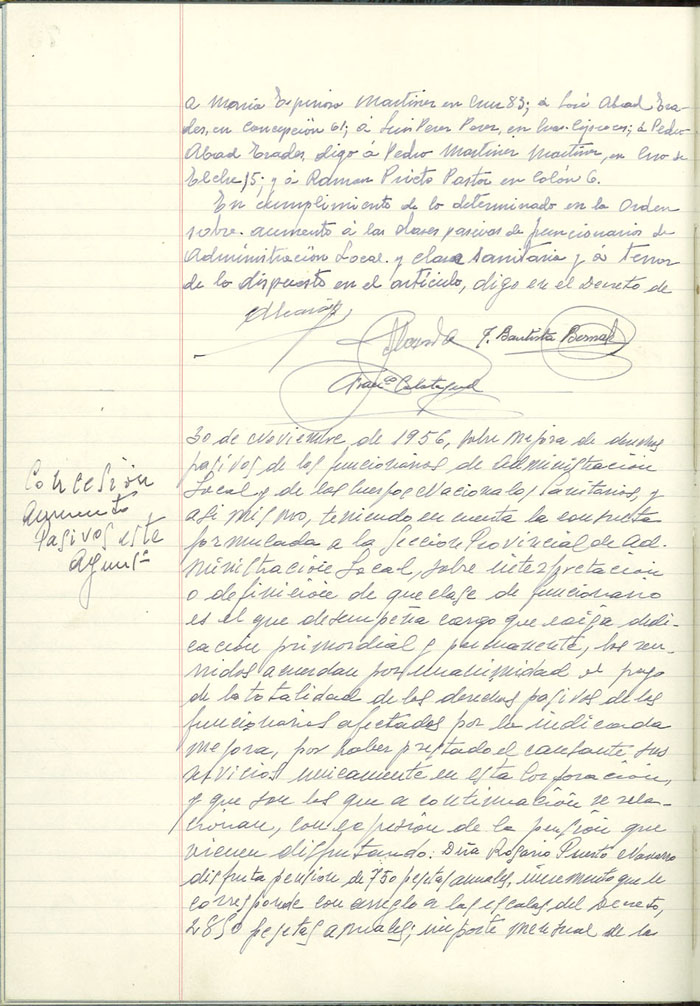 a María Espinosa Martinez en Cruz 83; á José Abad Era-
des, en Concepción 61; á Luis Perez Perez, en ; á Pedro
Abad Erades, digo á Pedro Martinez Martinez, en de
Elche 15; y á Ramon Prieto Pastor en Colón 6.
En cumplimiento de lo determinado en la Orden
sobre aumento á las clases pasivas de funcionarios de
Administración Local y clase sanitaria y á tenor
de lo dispuesto en el artículo, digo en el Decreto de
J. Bautista Bernab
Franco Calatayud
30 de Noviembre de 1956, sobre mejora de
pasivos de los funcionarios de Administración
Local y de los Cuerpos Nacionales Sanitarios, y
asi mismo, teniendo en cuenta la consulta
formulada a la Seccion Provincial de Ad-
ministración Local, sobre interpretacion
o definición de que clase de funcionario
es el que desempeña cargo que exija dedi-
cación primordial y permanente, los reu-
nidos acuerdan por unanimidad el pago
de la totalidad de los derechos pasivos de los
funcionarios afectados por la indicada
mejora, por haber prestado el causante sus
servicios unicamente en esta Corporación,
y que son los que a continuación se rela-
cionan, con expresión de la pensión que
vienen disfrutando. Dña Rosario Puerto Navarro
disfruta pension de 750 pesetas anuales, incremento que le
corresponde con arreglo a las escalas del Decreto,
2850 pesetas anuales; importe mensual de la
Concesión
aumento
Pasivos este
Ayunt